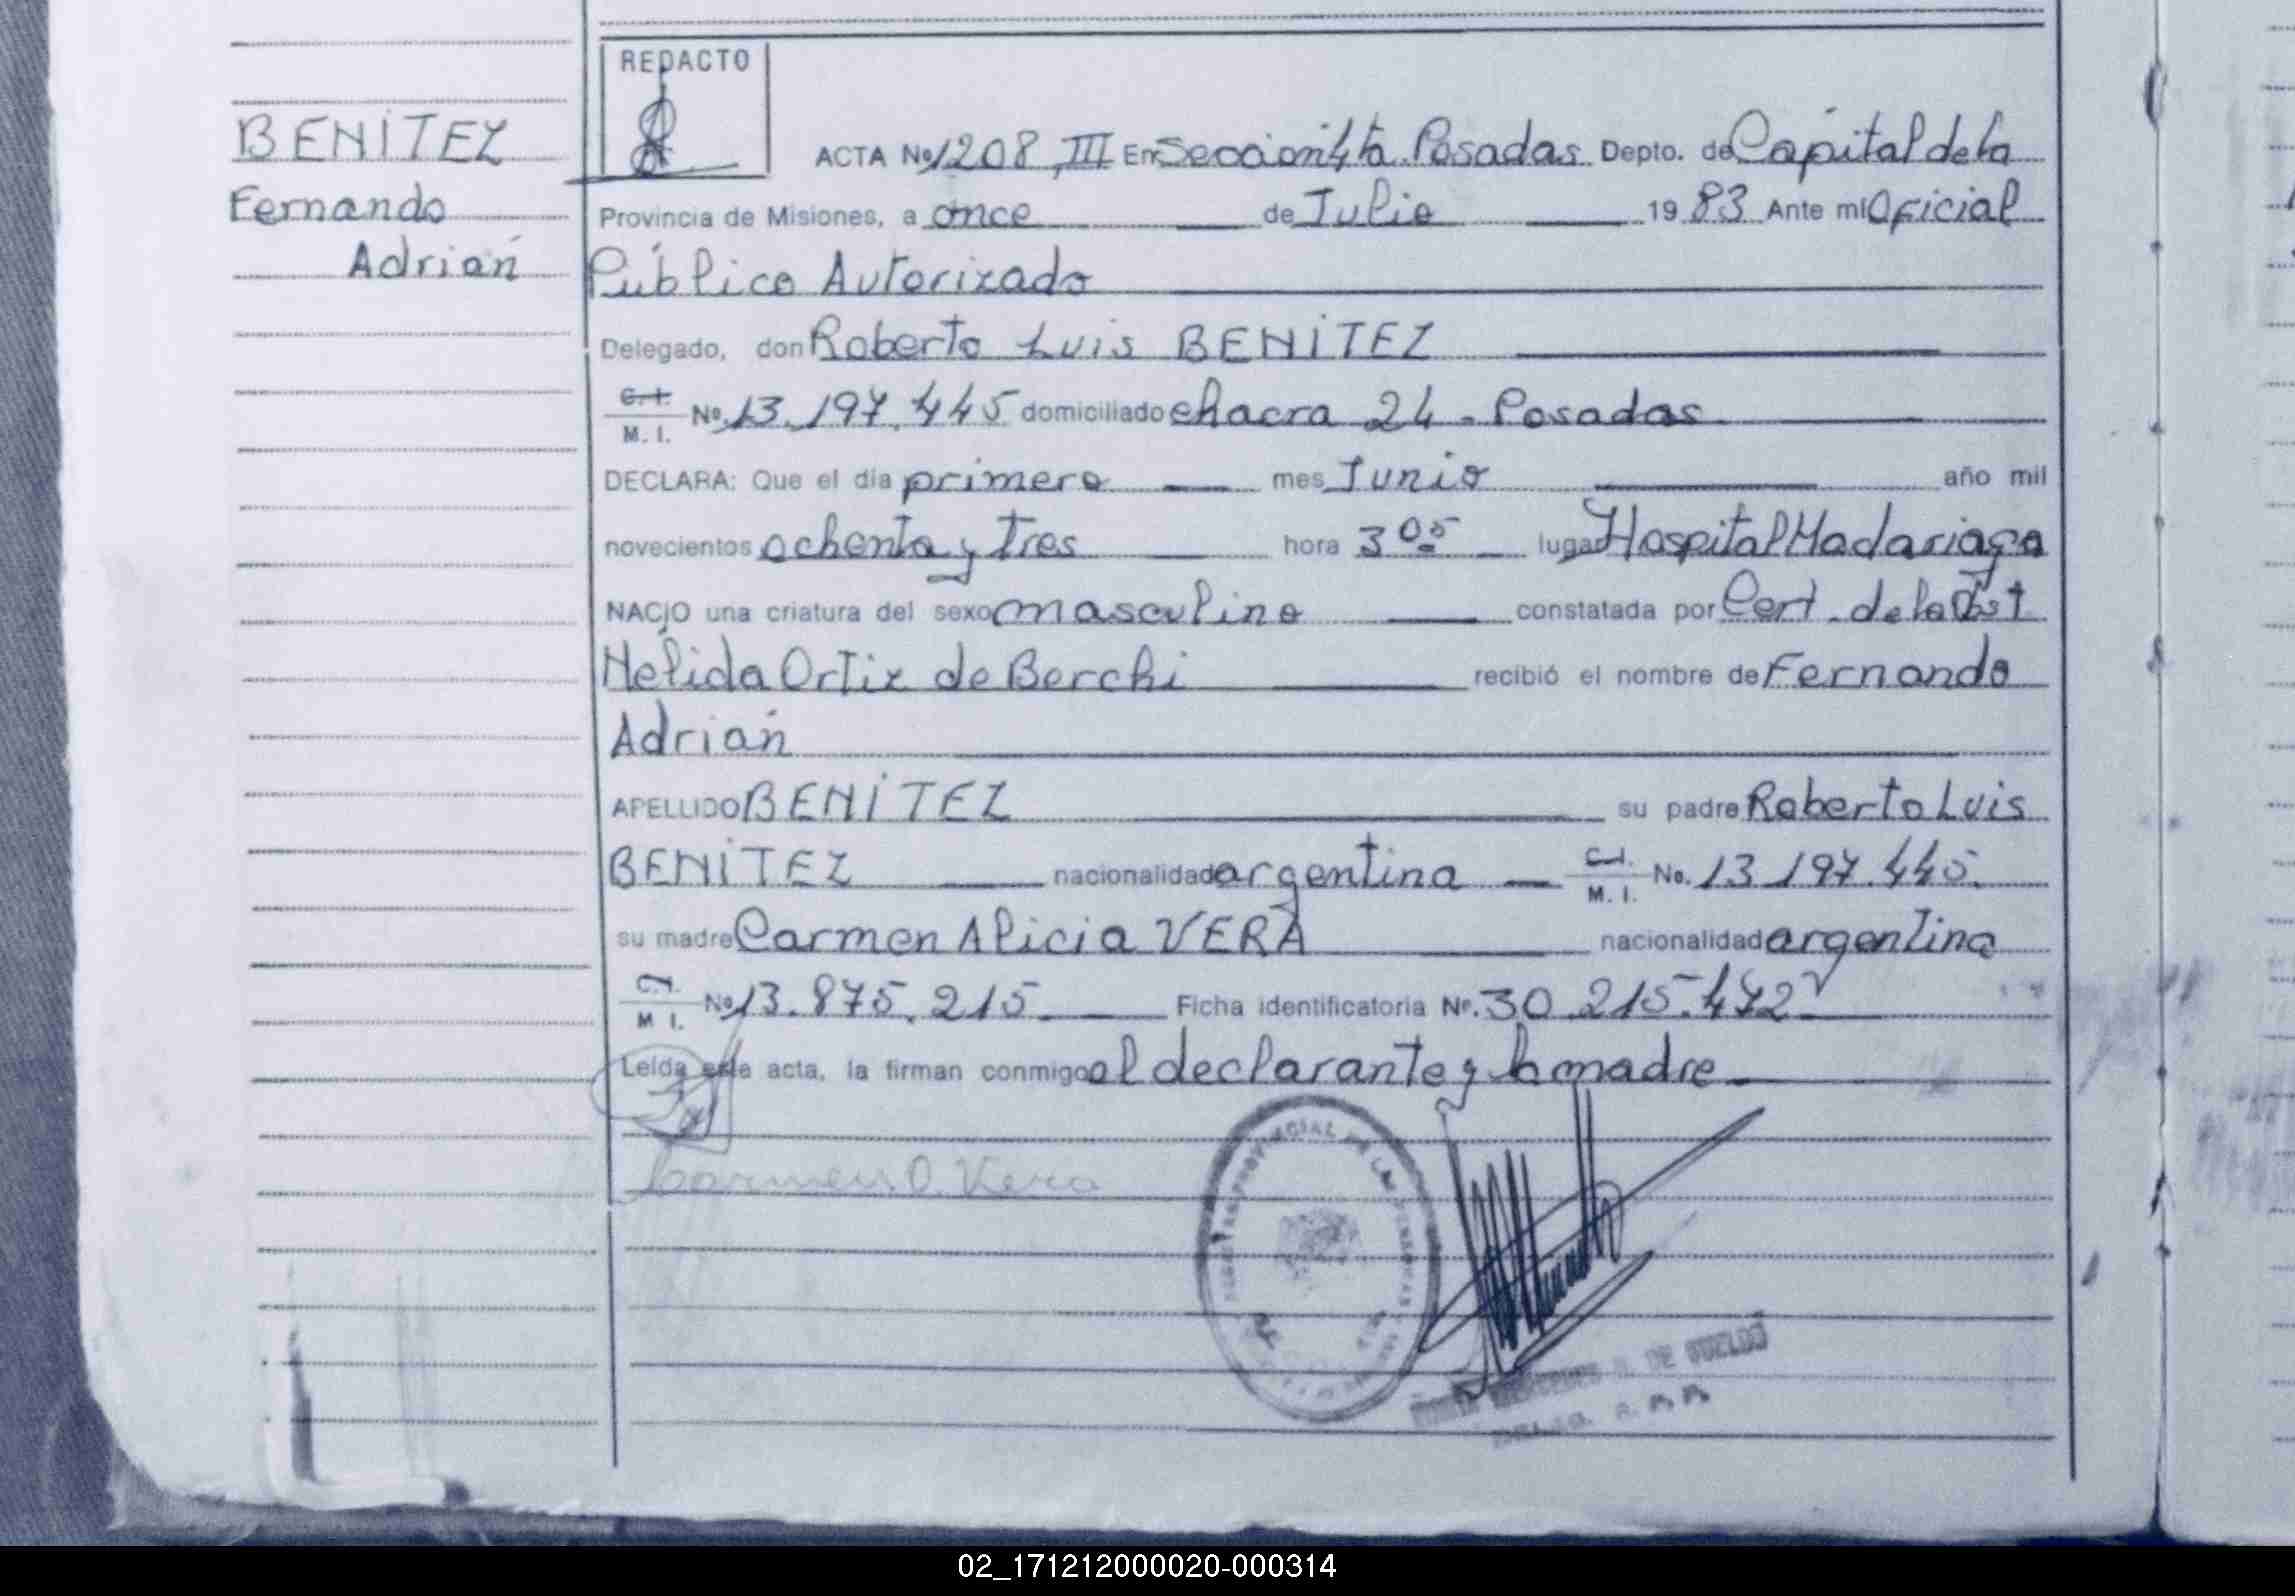 REDACTO
BENITEZ
Fernando
Adrián
ACTA Nº 1208, III En Sección 4ta. Posadas Depto. de Capital de la
Provincia de Misiones, a once de Julio 1983 Ante mí Oficial
Público Autorizado
Delegado, don Roberto Luis BENITEZ
C.I.
M. I. Nº 13.197.445 domiciliado chacra 24 - Posadas
DECLARA: Que el día primero mes Junio año mil
novecientos ochenta y tres hora 3 05 lugar Hospital Madariaga
NACIO una criatura del sexo masculino constatada por Cert. de la Obst
Nelida Ortiz de Berchi recibió el nombre de Fernando
Adrián
APELLIDO BENITEZ su padre Roberto Luis
BENITEZ nacionalidad argentina C.I.
M. I. No. 13.197.445.
su madre Carmen Alicia VERA nacionalidad argentina
C.I.
M I. Nº 13.875.215 Ficha identificatoria Nº. 30.215.472
Leída este acta, la firman conmigo el declarante y la madre
Carmen A. Vera
PROVINCIAL DE LAS PERSONAS
DE SUELDO
02_171212000020-000314